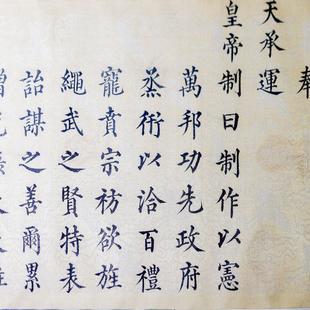 奉
天承運
皇帝制曰制作以憲
萬邦功先政府
蒸衎以洽百禮
寵賁宗祊欲旌
繩武之賢特表
詒謀之善爾累